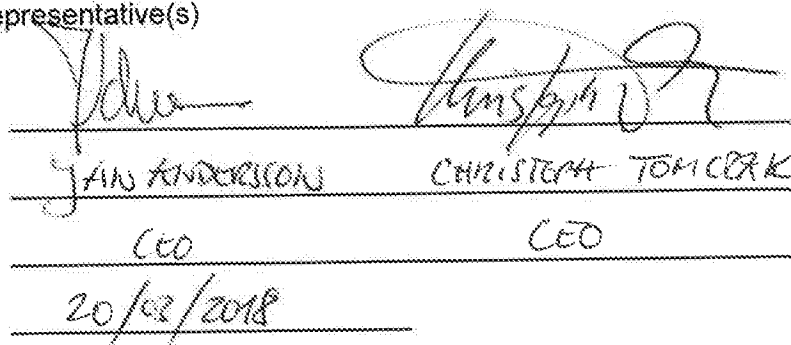 epresentative(s)
JAN ANDERSSON CHRISTOPH TOMCZAK
CEO CEO
20/03/2018